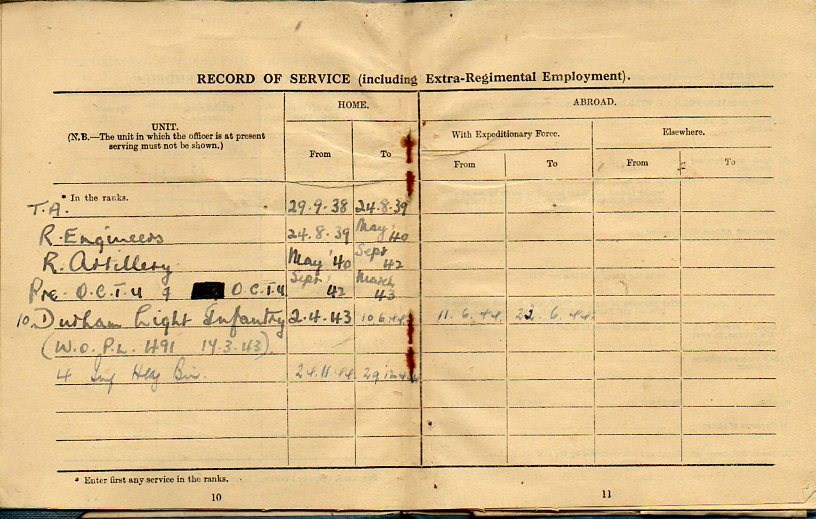 RECORD OF SERVICE (including Extra-Regimental Employment).
UNIT.
(N.B.—The unit in which the officer is at present
serving must not be shown.)
HOME.
ABROAD.
From To
With Expeditionary Force.
Elsewhere.
From To
From To
* In the ranks.
T.A. 29.9.38 24.8.39
R. Engineers 24.8.39 May '40
R. Artillery May '40 Sept 42
Pre-O.C.T.U & O.C.T.U Sept 42 March 43
10. Durham Light Infantry 2.4.43 10.6.44 11.6.44 22.6.44
(W.O.P.L. 491 17.3.43).
4 Inf Hdg Bn. 24.11.44 29.12.44
* Enter first any service in the ranks.
10
11